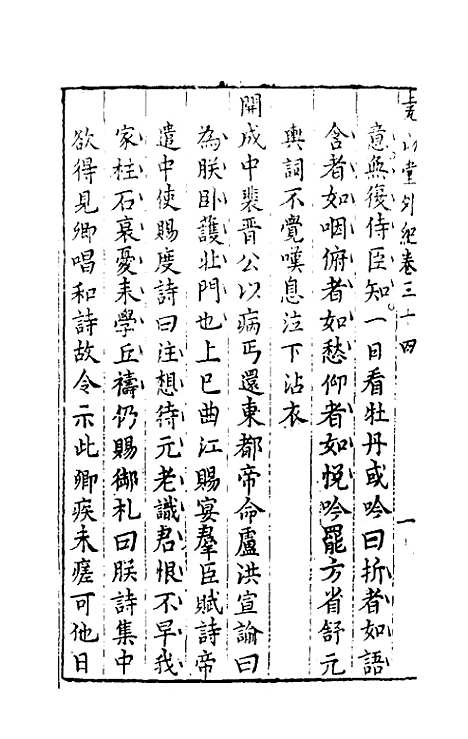 堯山堂外紀卷三十四 一
意無復侍臣知一日看牡丹或吟曰折者如語
含者如咽俯者如愁仰者如悅吟罷方省舒元
輿詞不覺嘆息泣下沾衣
開成中裴晉公以病丐還東都帝命盧洪宣諭曰
為朕卧護北門也上巳曲江賜宴羣臣賦詩帝
遣中使賜度詩曰注想待元老識君恨不早我
家柱石衰憂來學丘禱仍賜御札曰朕詩集中
欲得見卿唱和詩故令示此卿疾未痊可他日